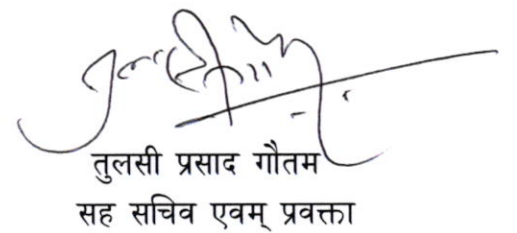 तुलसी प्रसाद गौतम
सह सचिव एवम् प्रवक्ता